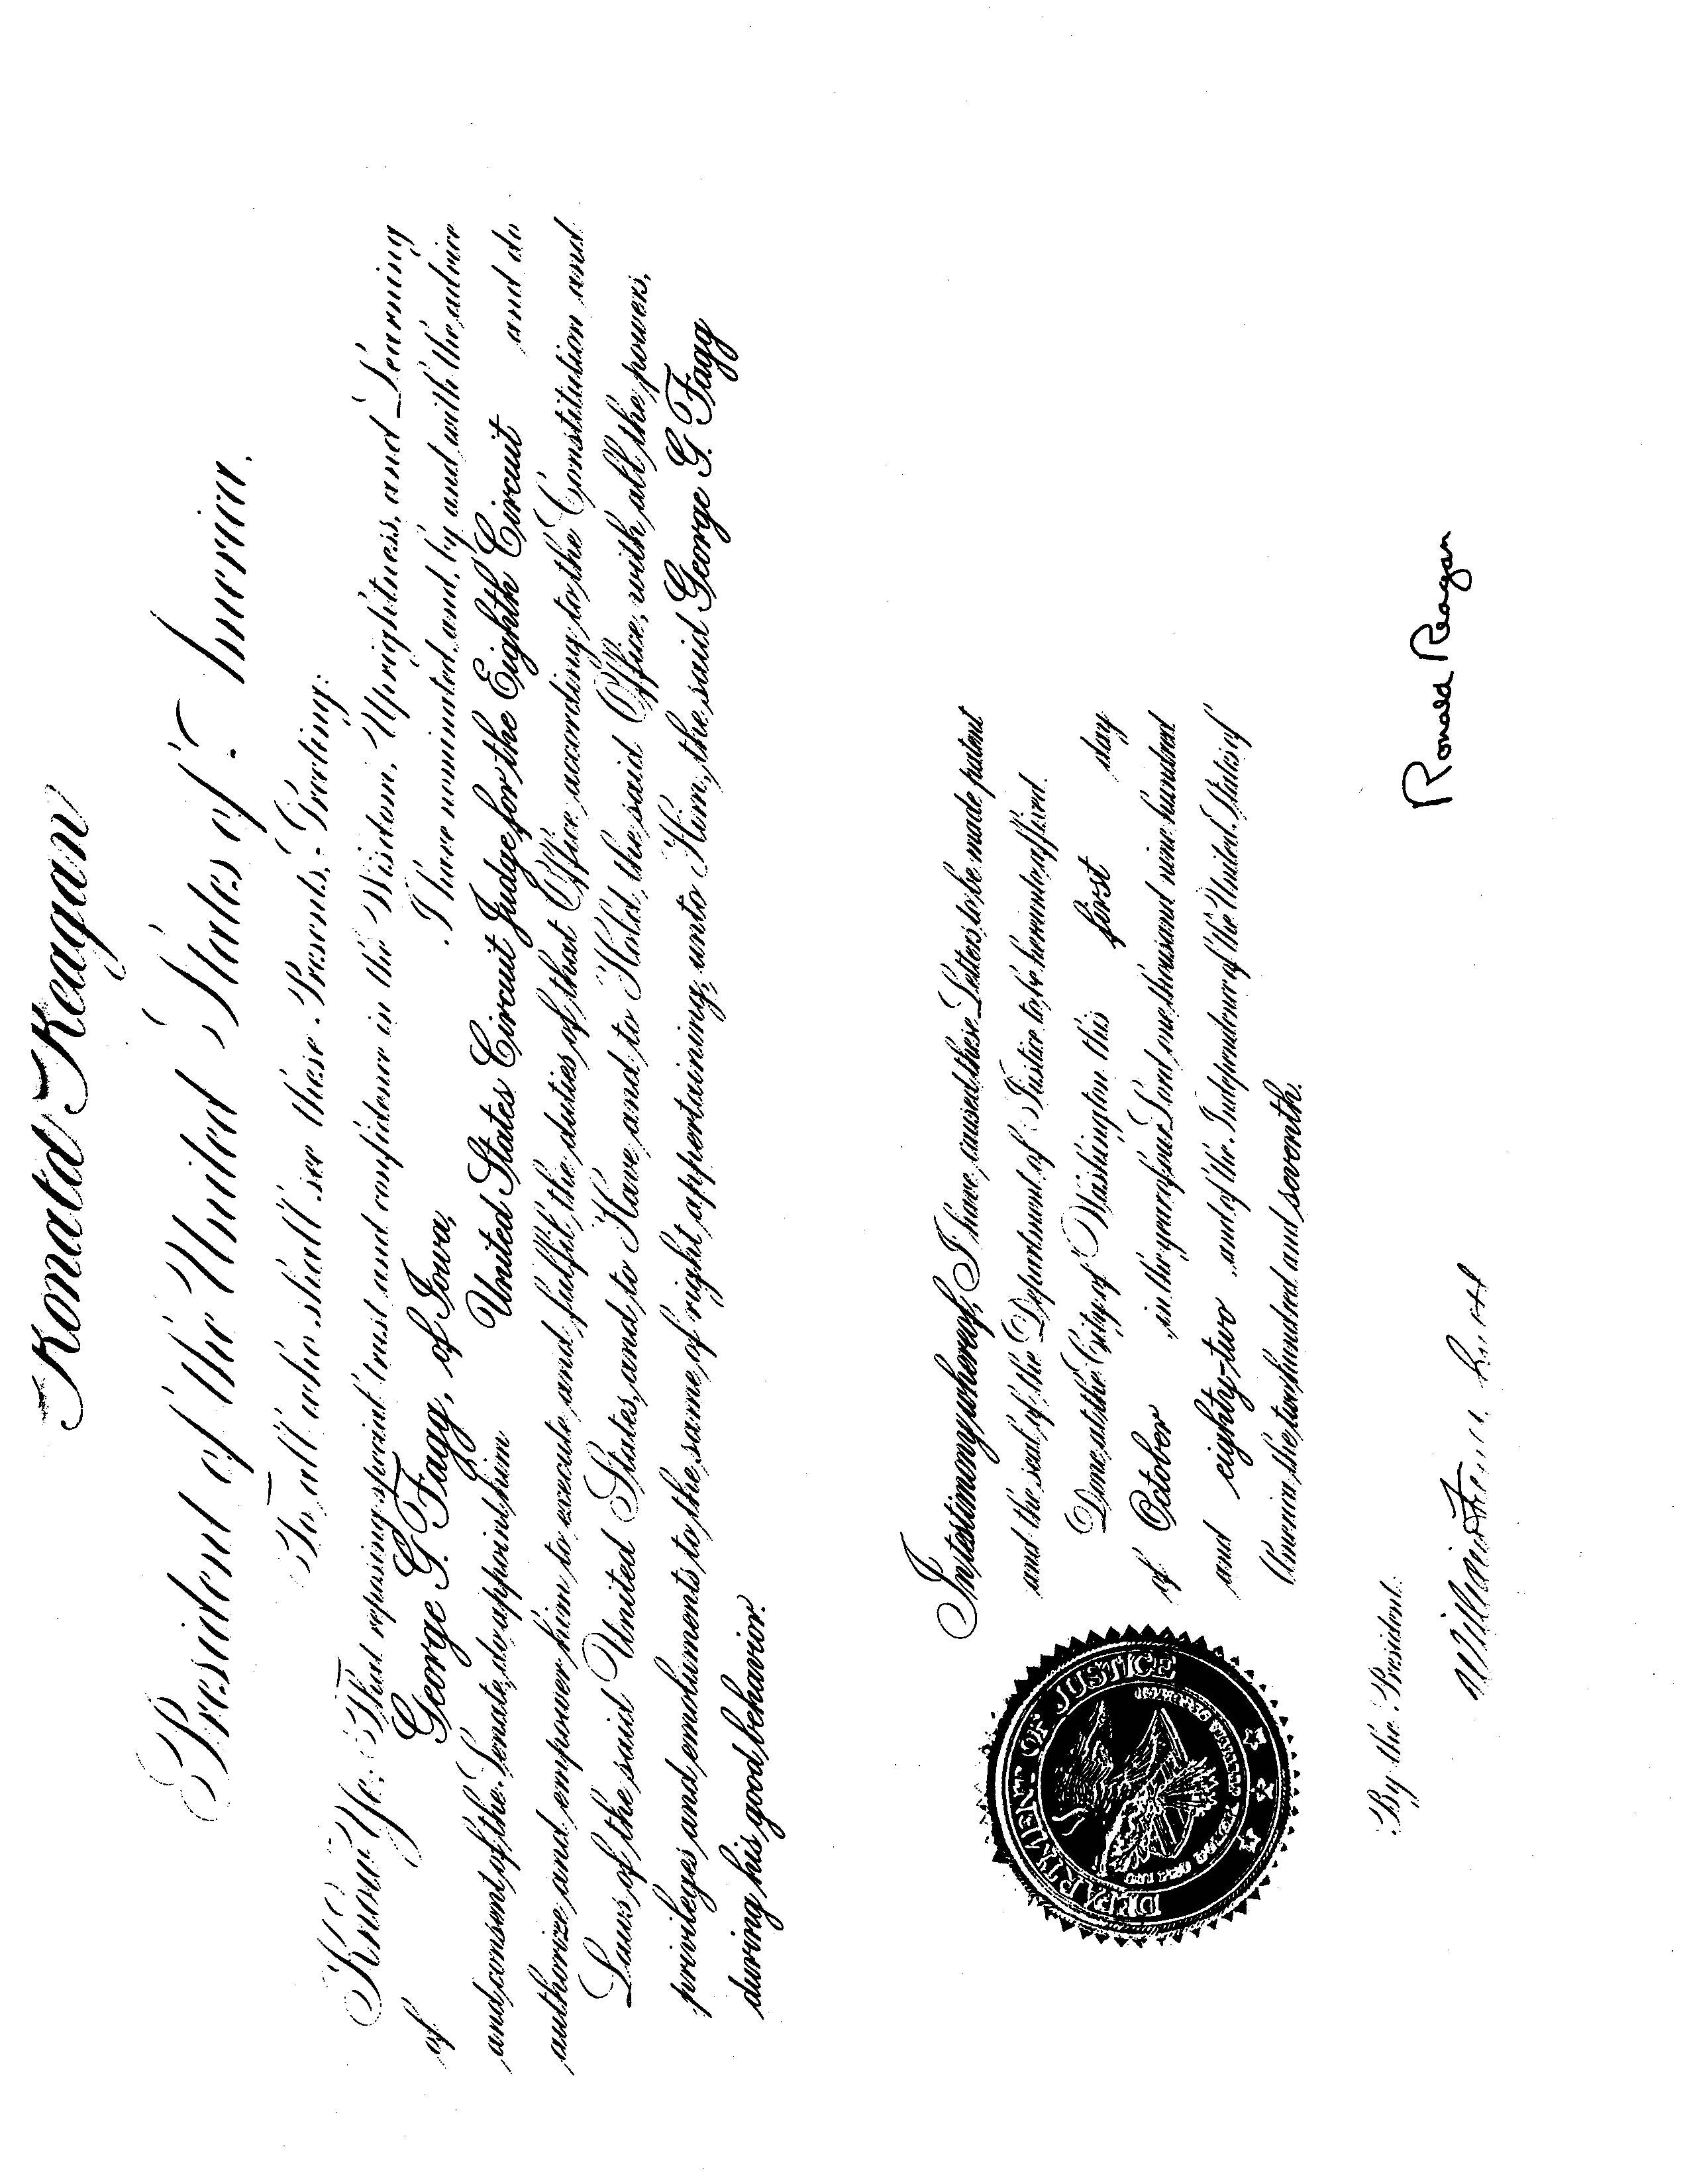 Ronald Reagan
President of the United States of America.
To all who shall see these Presents, Greeting:
Know Ye; That reposing special trust and confidence in the Wisdom, Uprightness, and Learning
of George G. Fagg, of Iowa, I have nominated, and, by and with the advice
and consent of the Senate, do appoint him United States Circuit Judge for the Eighth Circuit and do
authorize and empower him to execute and fulfil the duties of that Office according to the Constitution and
Laws of the said United States, and to Have and to Hold the said Office, with all the powers,
privileges and emoluments to the same of right appertaining, unto Him, the said George G. Fagg
during his good behavior.
In testimony whereof, I have caused these Letters to be made patent
and the seal of the Department of Justice to be hereunto affixed.
Done at the City of Washington this first day
of October in the year of our Lord one thousand nine hundred
and eighty-two and of the Independence of the United States of
America the two hundred and seventh.
DEPARTMENT OF JUSTICE
QUI PRO DOMINA JUSTITIA SEQUITUR
Ronald Reagan
By the President:
William French